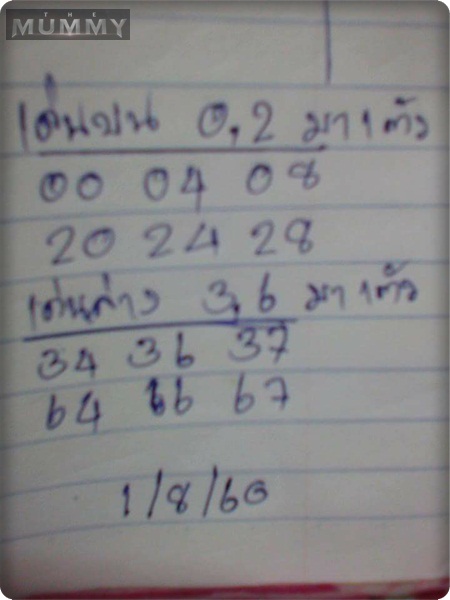 THE
MUMMY
เด่นบน 0,2 มา 1 ตัว
00 04 08
20 24 28
เด่นล่าง 3,6 มา 1 ตัว
34 36 37
64 66 67
1/8/60